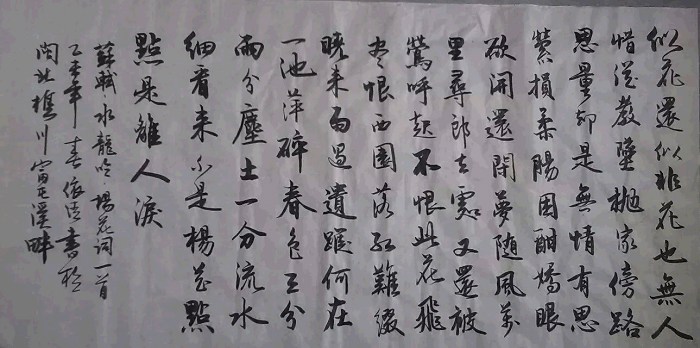 似花還似非花也無人
惜從教墜拋家傍路
思量却是無情有思
縈損柔腸困酣嬌眼
欲開還閉夢随風萬
里尋郎去處又還被
鶯呼起不恨此花飛
盡恨西園落紅難綴
曉來雨過遺蹤何在
一池萍碎春色三分
兩分塵土一分流水
細看来不是楊花點
點是離人淚
蘇軾水龍吟楊花詞一首
乙未年春書於
閩北樵川富屯溪畔